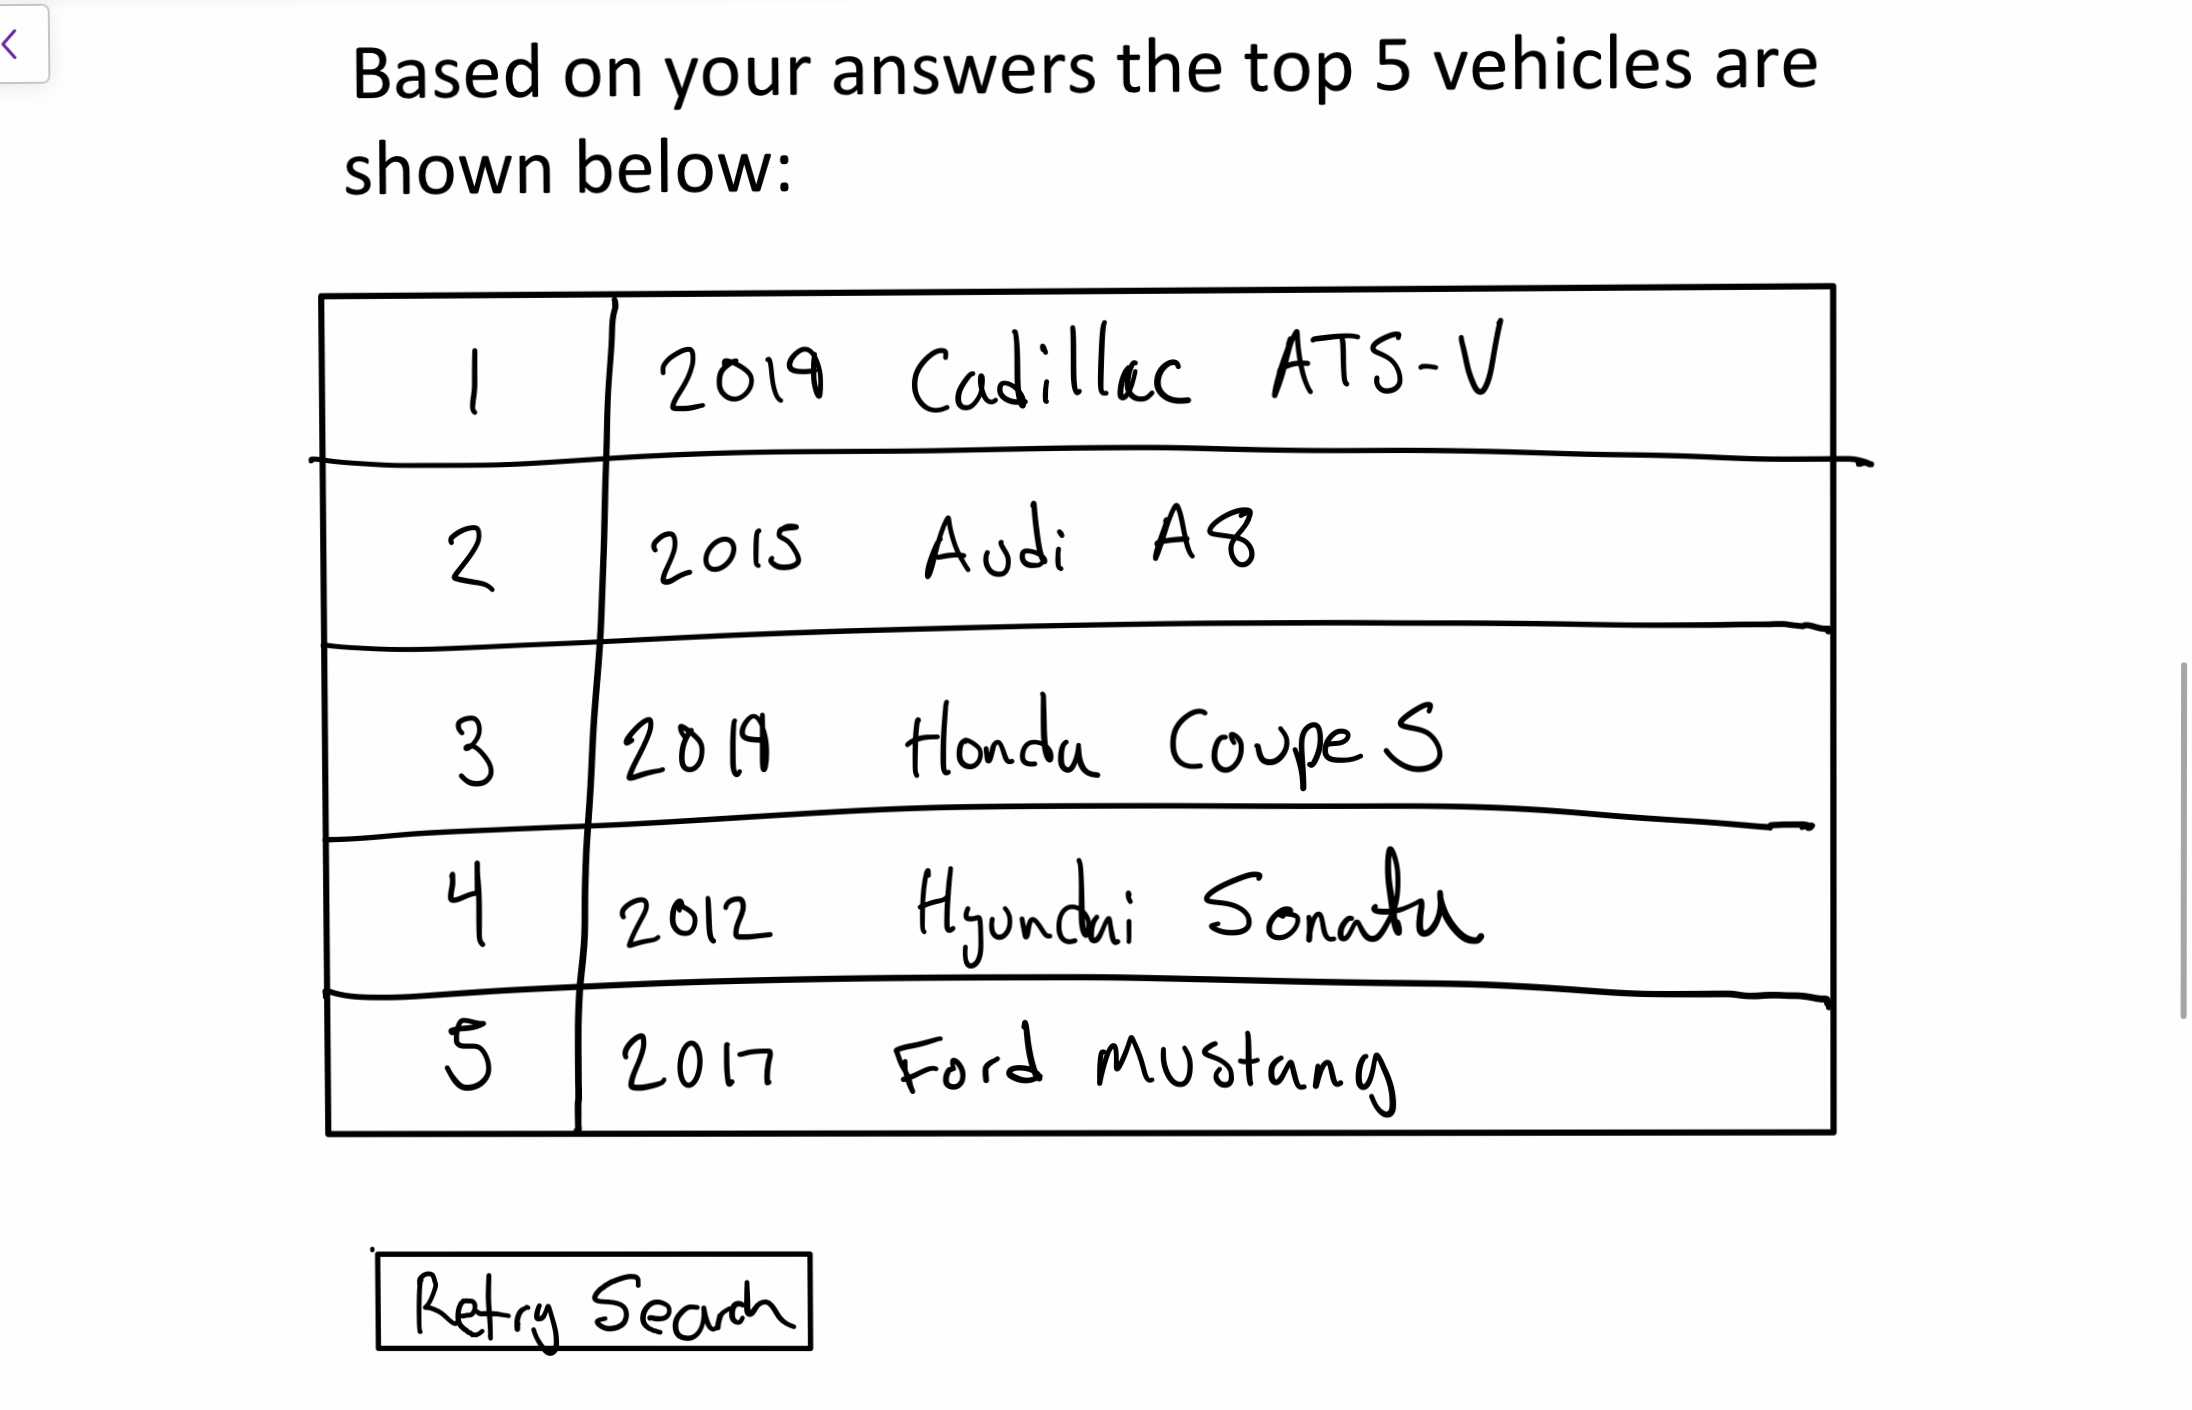 Based on your answers the top 5 vehicles are
shown below:
1 2019 Cadillac ATS-V
2 2015 Audi A8
3 2019 Honda Coupe S
4 2012 Hyundai Sonata
5 2017 Ford Mustang
Retry Search